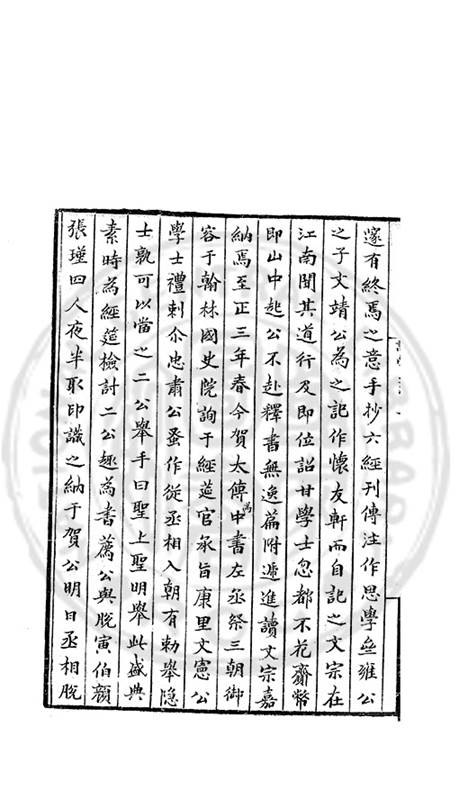 邃有終焉之意手抄六經刋傳注作思學齋雍公
之子文靖公為之記作懷友軒而自記之文宗在
江南聞其道行及即位詔廿學士忽都不花齎幣
即山中起公不赴釋書無逸篇附遞進讀文宗嘉
納焉至正三年春今賀太傅中書左丞祭三朝御
容于翰林國史院詢于經莚官承旨康里文憲公
學士禮刺尒忠肅公蚤作從丞相入朝有勑舉隱
士孰可以當之二公舉手曰聖上聖明舉此盛典
素時為經莚檢討二公趣為書薦公與脫寅伯顏
張瑾四人夜半取印識之納于賀公明日丞相脫